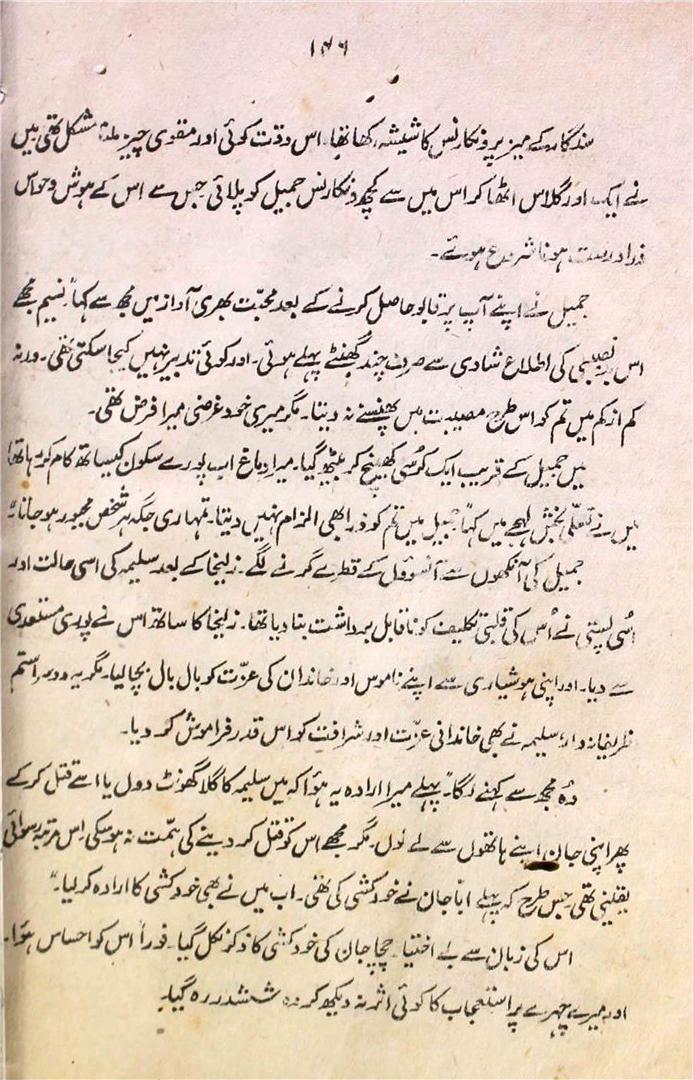 ۱۴۶
سنگار کے میز پر وُنکارنس کا شیشہ رکھا تھا۔ اس وقت کوئی اور مقوی چیز ملنا مشکل تھی میں
نے ایک اور گلاس اٹھا کر اس میں سے کچھ ونکارنس جمیل کو پلائی جس سے اس کے ہوش و حواس
ذرا درست ہونا شروع ہوئے۔
جمیل نے اپنے آپ پر قابو حاصل کرنے کے بعد محبّت بھری آواز میں مجھ سے کہا۔ نسیم مجھے
اس بدنصیبی کی اطلاع شادی سے صرف چند گھنٹے پہلے ہوئی۔ اور کوئی تدبیر نہیں کیجا سکتی تھی۔ ورنہ
کم از کم میں تم کو اس طرح مصیبت میں پھنسنے نہ دیتا۔ مگر میری خود غرضی میرا فرض تھی۔
میں جمیل کے قریب ایک کرُسی کھینچ کر بیٹھ گیا۔ میرا دماغ اب پورے سکون کیساتھ کام کر رہا تھا
میں نے تسلّی بخش لہجے میں کہا "جمیل میں تم کو ذرا بھی الزام نہیں دیتا۔ تمہاری جگہ ہر شخص مجبور ہو جاتا"
جمیل کی آنکھوں سے آنسوؤں کے قطرے گرنے لگے۔ زلیخا کے بعد سلیمہ کی اسی حالت اور
اسُی پستی نے اُس کی قلبی تکلیف کو ناقابل برداشت بنا دیا تھا۔ زلیخا کا ساتھ اس نے پوری مستعدی
سے دیا۔ اور اپنی ہوشیاری سے اپنے ناموس اور خاندان کی عزّت کو بال بال بچا لیا۔ مگر یہ دوسرا ستم
ظریفانہ وار! سلیمہ نے بھی خاندانی عزّت اور شرافت کو اس قدر فراموش کر دیا۔
وُہ مجھ سے کہنے لگا۔ "پہلے میرا ارادہ یہ ہوُا کہ میں سلیمہ کا گلا گھونٹ دوں یا اسے قتل کر کے
پھر اپنی جان اپنے ہاتھوں سے لے لوُں۔ مگر مجھے اس کو قتل کر دینے کی ہمّت نہ ہو سکی اِس مرتبہ رسوائی
یقینی تھی جس طرح کہ پہلے ابّا جان نے خودکشی کی تھی۔ اب میں نے بھی خودکشی کا ارادہ کر لیا۔"
اس کی زبان سے بے اختیار چچا جان کی خودکشی کا ذکر نکل گیا۔ فوراً اس کو احساس ہوُا۔
اور میرے چہرے پر استعجاب کا کوئی اثر نہ دیکھ کر وہ ششدر رہ گیا۔